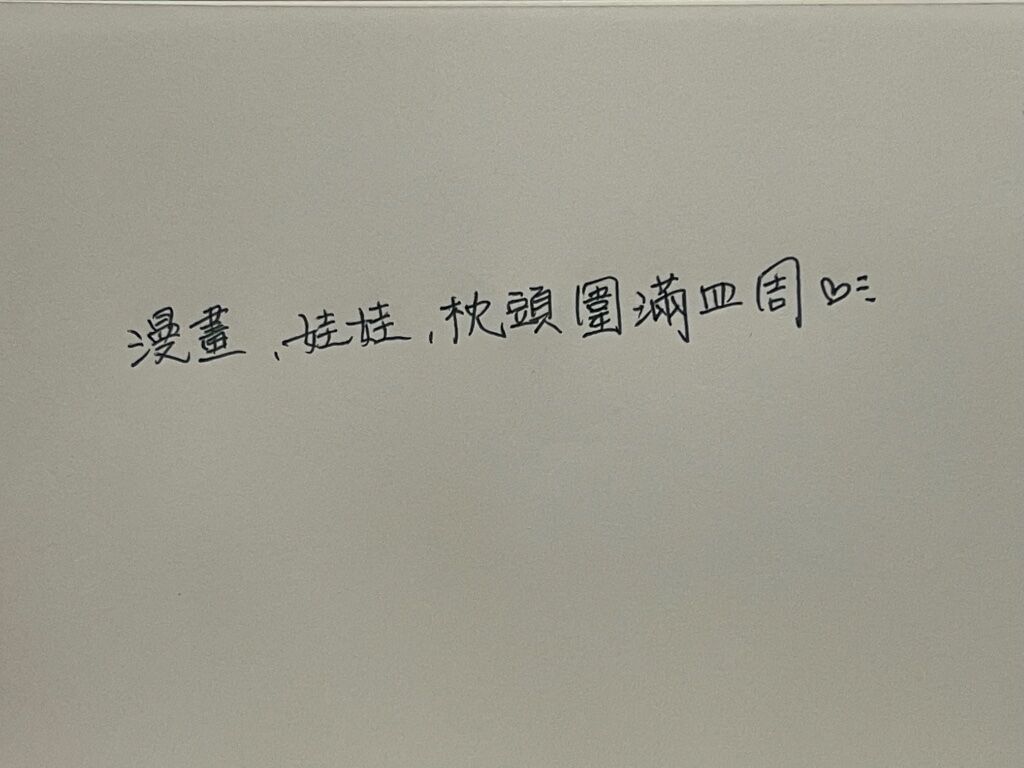 漫畫、娃娃、枕頭圍滿四周♡